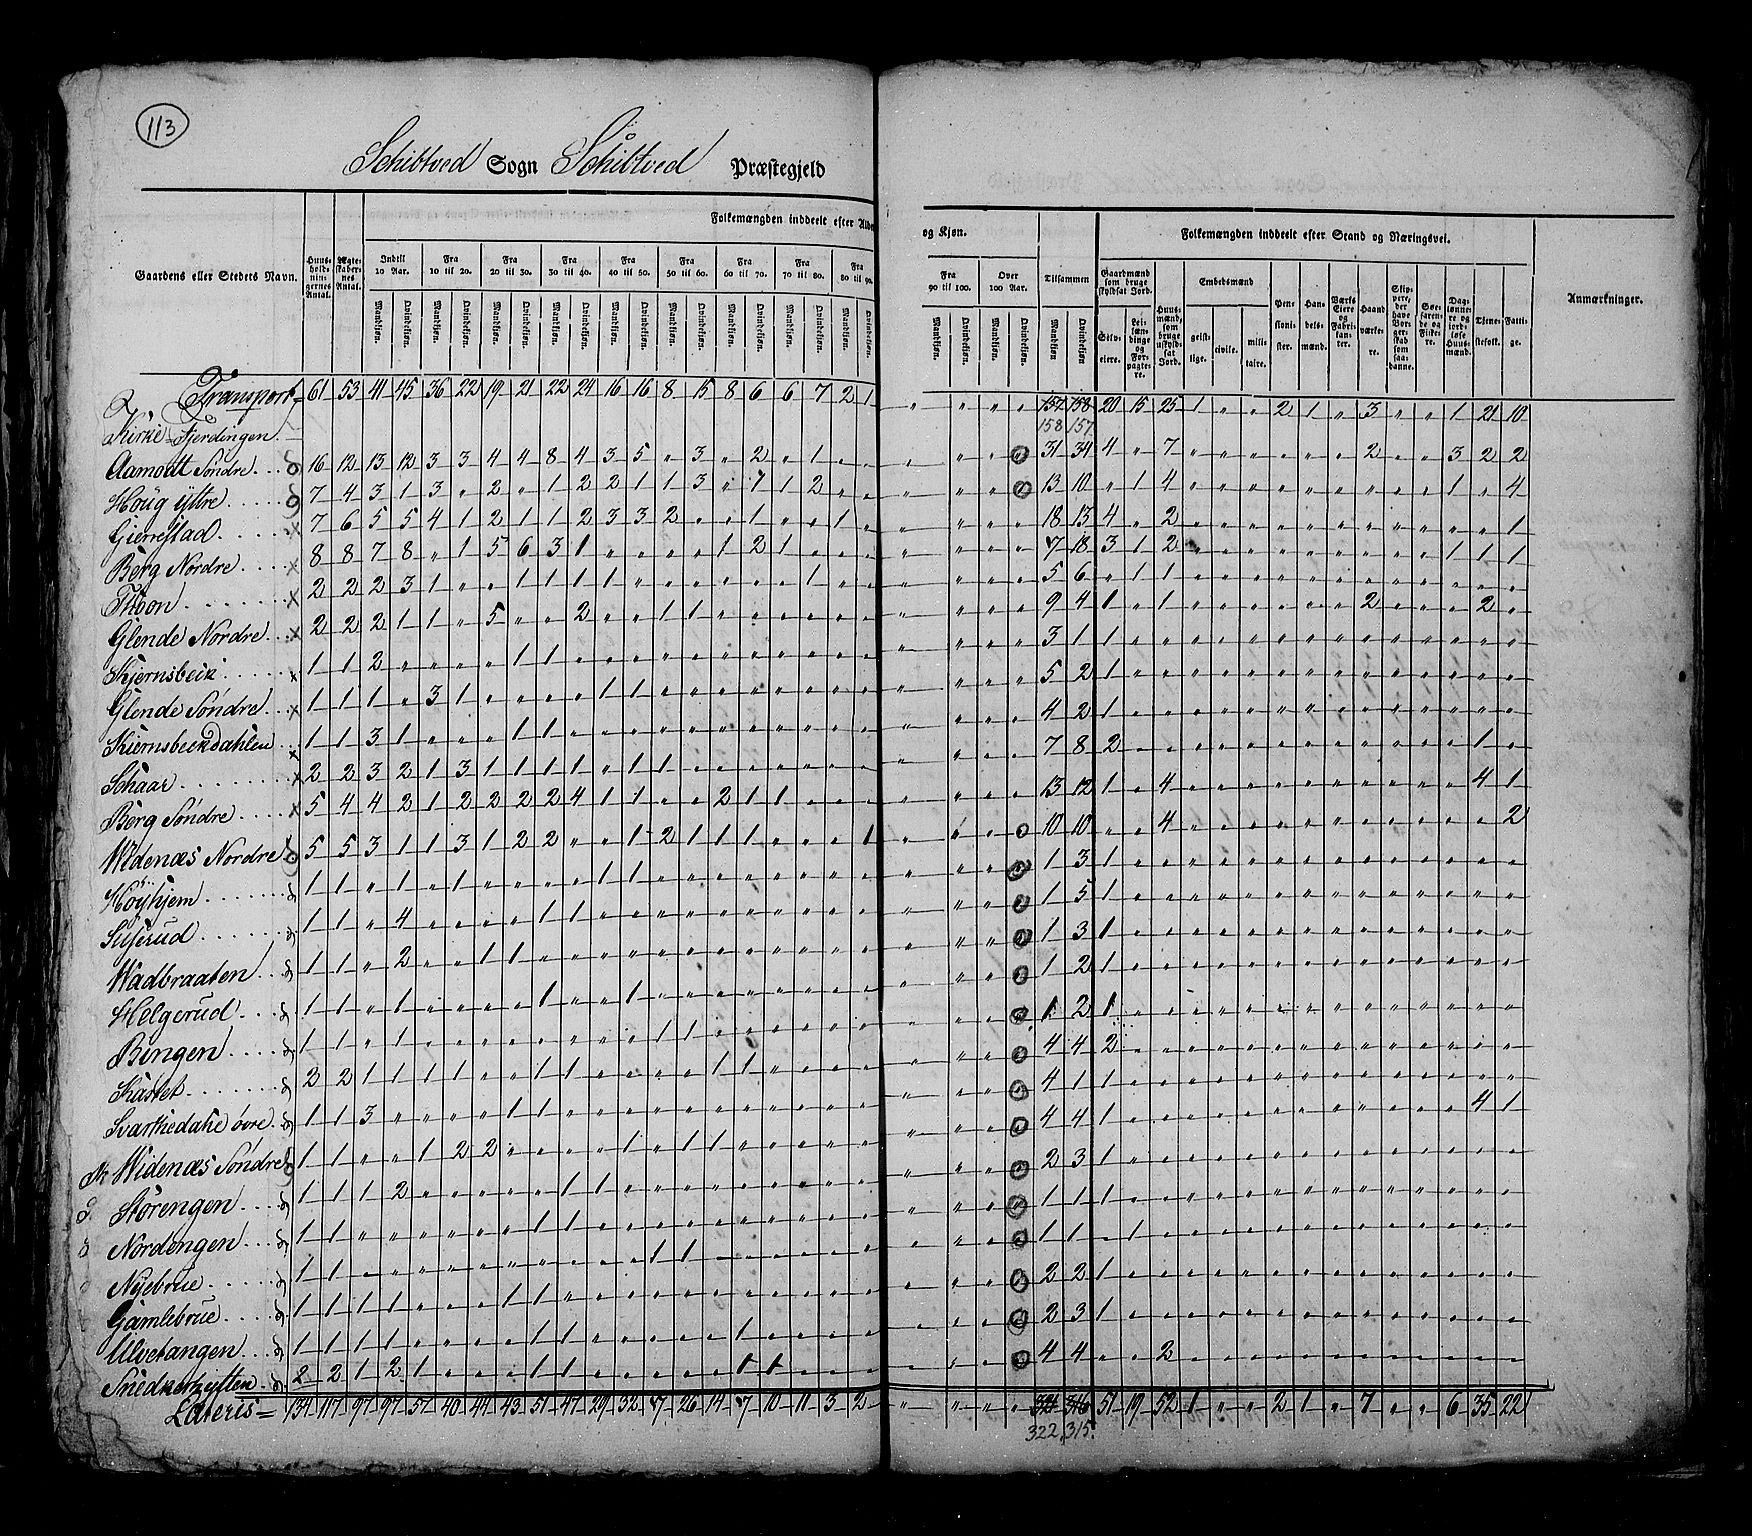 113
Schibtved Sogn Schibtved Præstegjeld
Folkemængden inddeelt efter Alder og Kjøn.
Folkemængden inddeelt efter Stand og Næringsvei.
Gaardens eller Stedets Navn.
Huus-holdnin-gernes Antal.
Ægte-skaber-nes Antal.
Indtil 10 Aar.
Fra 10 til 20.
Fra 20 til 30.
Fra 30 til 40.
Fra 40 til 50.
Fra 50 til 60.
Fra 60 til 70.
Fra 70 til 80.
Fra 80 til 90.
Fra 90 til 100.
Over 100 Aar.
Tilsammen
Mandkjøn. Qvindekjøn.
Gaardmænd som bruge skyldsat Jord.
Selv-eiere.
Lei-læn-dinge og For-pagte-re.
Huus-mænd, som bruge uskyld-sat Jord.
Embedsmænd
geist-lige.
civile.
mili-taire.
Pen-sioni-ster.
Han-dels-mænd.
Værks Eiere og Fabri-kan-ter.
Haand-værke-re.
Skip-pere, der have Bor-ger-skab som saa-danne.
Søe-farende og Fiske-re.
Dag-lønne-re og jord-løse Huus-mænd.
Tjene-stefolk.
Fatti-ge.
Anmærkninger.
Transport 61 53 41 45 36 22 19 21 22 24 16 16 8 15 8 6 6 7 2 1 " " " " 157 158 20 15 25 1 " " 2 1 " 3 " " 1 21 10
158 157
Kirke-Fjerdingen
Aamodt Søndre 16 12 13 12 3 3 4 4 8 4 3 5 " 3 " 2 " 1 " " 31 34 4 " 7 " " " " " " 2 " " 3 2 2
Houg yttre 7 4 3 1 3 " 2 " 1 2 2 1 1 3 " 1 1 2 " " 13 10 " 1 4 " " " " " " " " " 1 " 4
Gierrestad 7 6 5 5 4 1 2 1 1 2 3 3 2 " " 1 " " 1 " 18 13 4 " 2 " " " " " " " " " " " 1
Berg Nordre 8 8 7 8 " 1 5 6 3 1 " " " " 1 2 1 " " " 7 18 3 1 2 " " " " " " " " " 1 1 1
Thoon 2 2 2 3 1 " " 1 1 1 1 " " " " " " 1 " " 5 6 " 1 1
Glende Nordre 2 2 2 1 1 " 5 " " 2 " " 1 1 " " " " " " 9 4 1 " 1 " " " " " " 2 " " " 2 "
Kjernsbeck 1 1 2 " " " " 1 1 " " " " " " " " " " " 3 1 1
Glende Søndre 1 1 1 " 3 1 " " " " 1 1 " " " " " " " " 5 2 1
Kiernsbeckdahlen 1 1 3 1 " " " 1 1 " " " " " " " " " " " 4 2 1
Schaar 2 2 3 2 1 3 1 1 1 1 " 1 1 " " " " " " " 7 8 2 " " " " " " " " " " " " 1 "
Berg Søndre 5 4 4 2 1 2 2 2 2 4 1 1 " " 2 1 1 " " " 13 12 1 " 4 " " " " " " " " " " 4 1
Widenæs Nordre 5 5 3 1 1 3 1 2 2 " " 1 2 1 1 1 " " " 1 10 10 " " 4 " " " " " " " " " " " 2
Høyhjem 1 1 " 1 " 1 " " " " 1 1 " " " " " " " " 1 3 1
Suserud 1 1 " 4 " " " " 1 1 " " " " " " " " " " 1 5 1
Wadbraaten 1 1 " 2 " " 1 1 " " " " " " " " " " " " 1 3 1
Helgerud 1 1 " 1 " " " " 1 " " 1 " " " " " " " " 1 2 1
Bingen 1 1 " 1 " " " " " " " " 1 1 " " " " " " 1 2 1
Kastet 2 2 1 1 1 1 " " 1 1 " " " " 1 1 " " " " 4 4 2
Svarthedahl øvre 1 1 3 " " " " 1 1 " " " " " " " " " " " 4 1 1
Widenæs Søndre 1 1 " " 1 2 2 " " " " 1 " 1 1 " " " " " 4 4 1 " " " " " " " " " " " " 4 1
Størengen 1 1 1 2 " " " " " 1 1 " " " " " " " " " 2 3 1
Nordengen 1 1 " " " " " " 1 1 " " " " " " " " " " 1 1 1
Nyebrue 1 1 " " " " " " " " " " 1 1 " " " " " " 1 1 " 1
Gamlebrue 1 1 1 1 " " " 1 1 " " " " " " " " " " " 2 2 1
Ulvetangen 1 1 1 1 " " " " 1 1 " " " " " 1 " " " " 2 3 1
Snedkerhytten 2 2 1 2 1 " " " 1 1 " " " " " 1 1 " " " 4 4 " " 2
Lateris = 134 117 97 97 57 40 44 43 51 47 29 32 17 26 14 17 10 11 3 2 " " " " 324 316 51 19 52 1 " " 2 1 " 7 " " 6 35 22
322. 315.